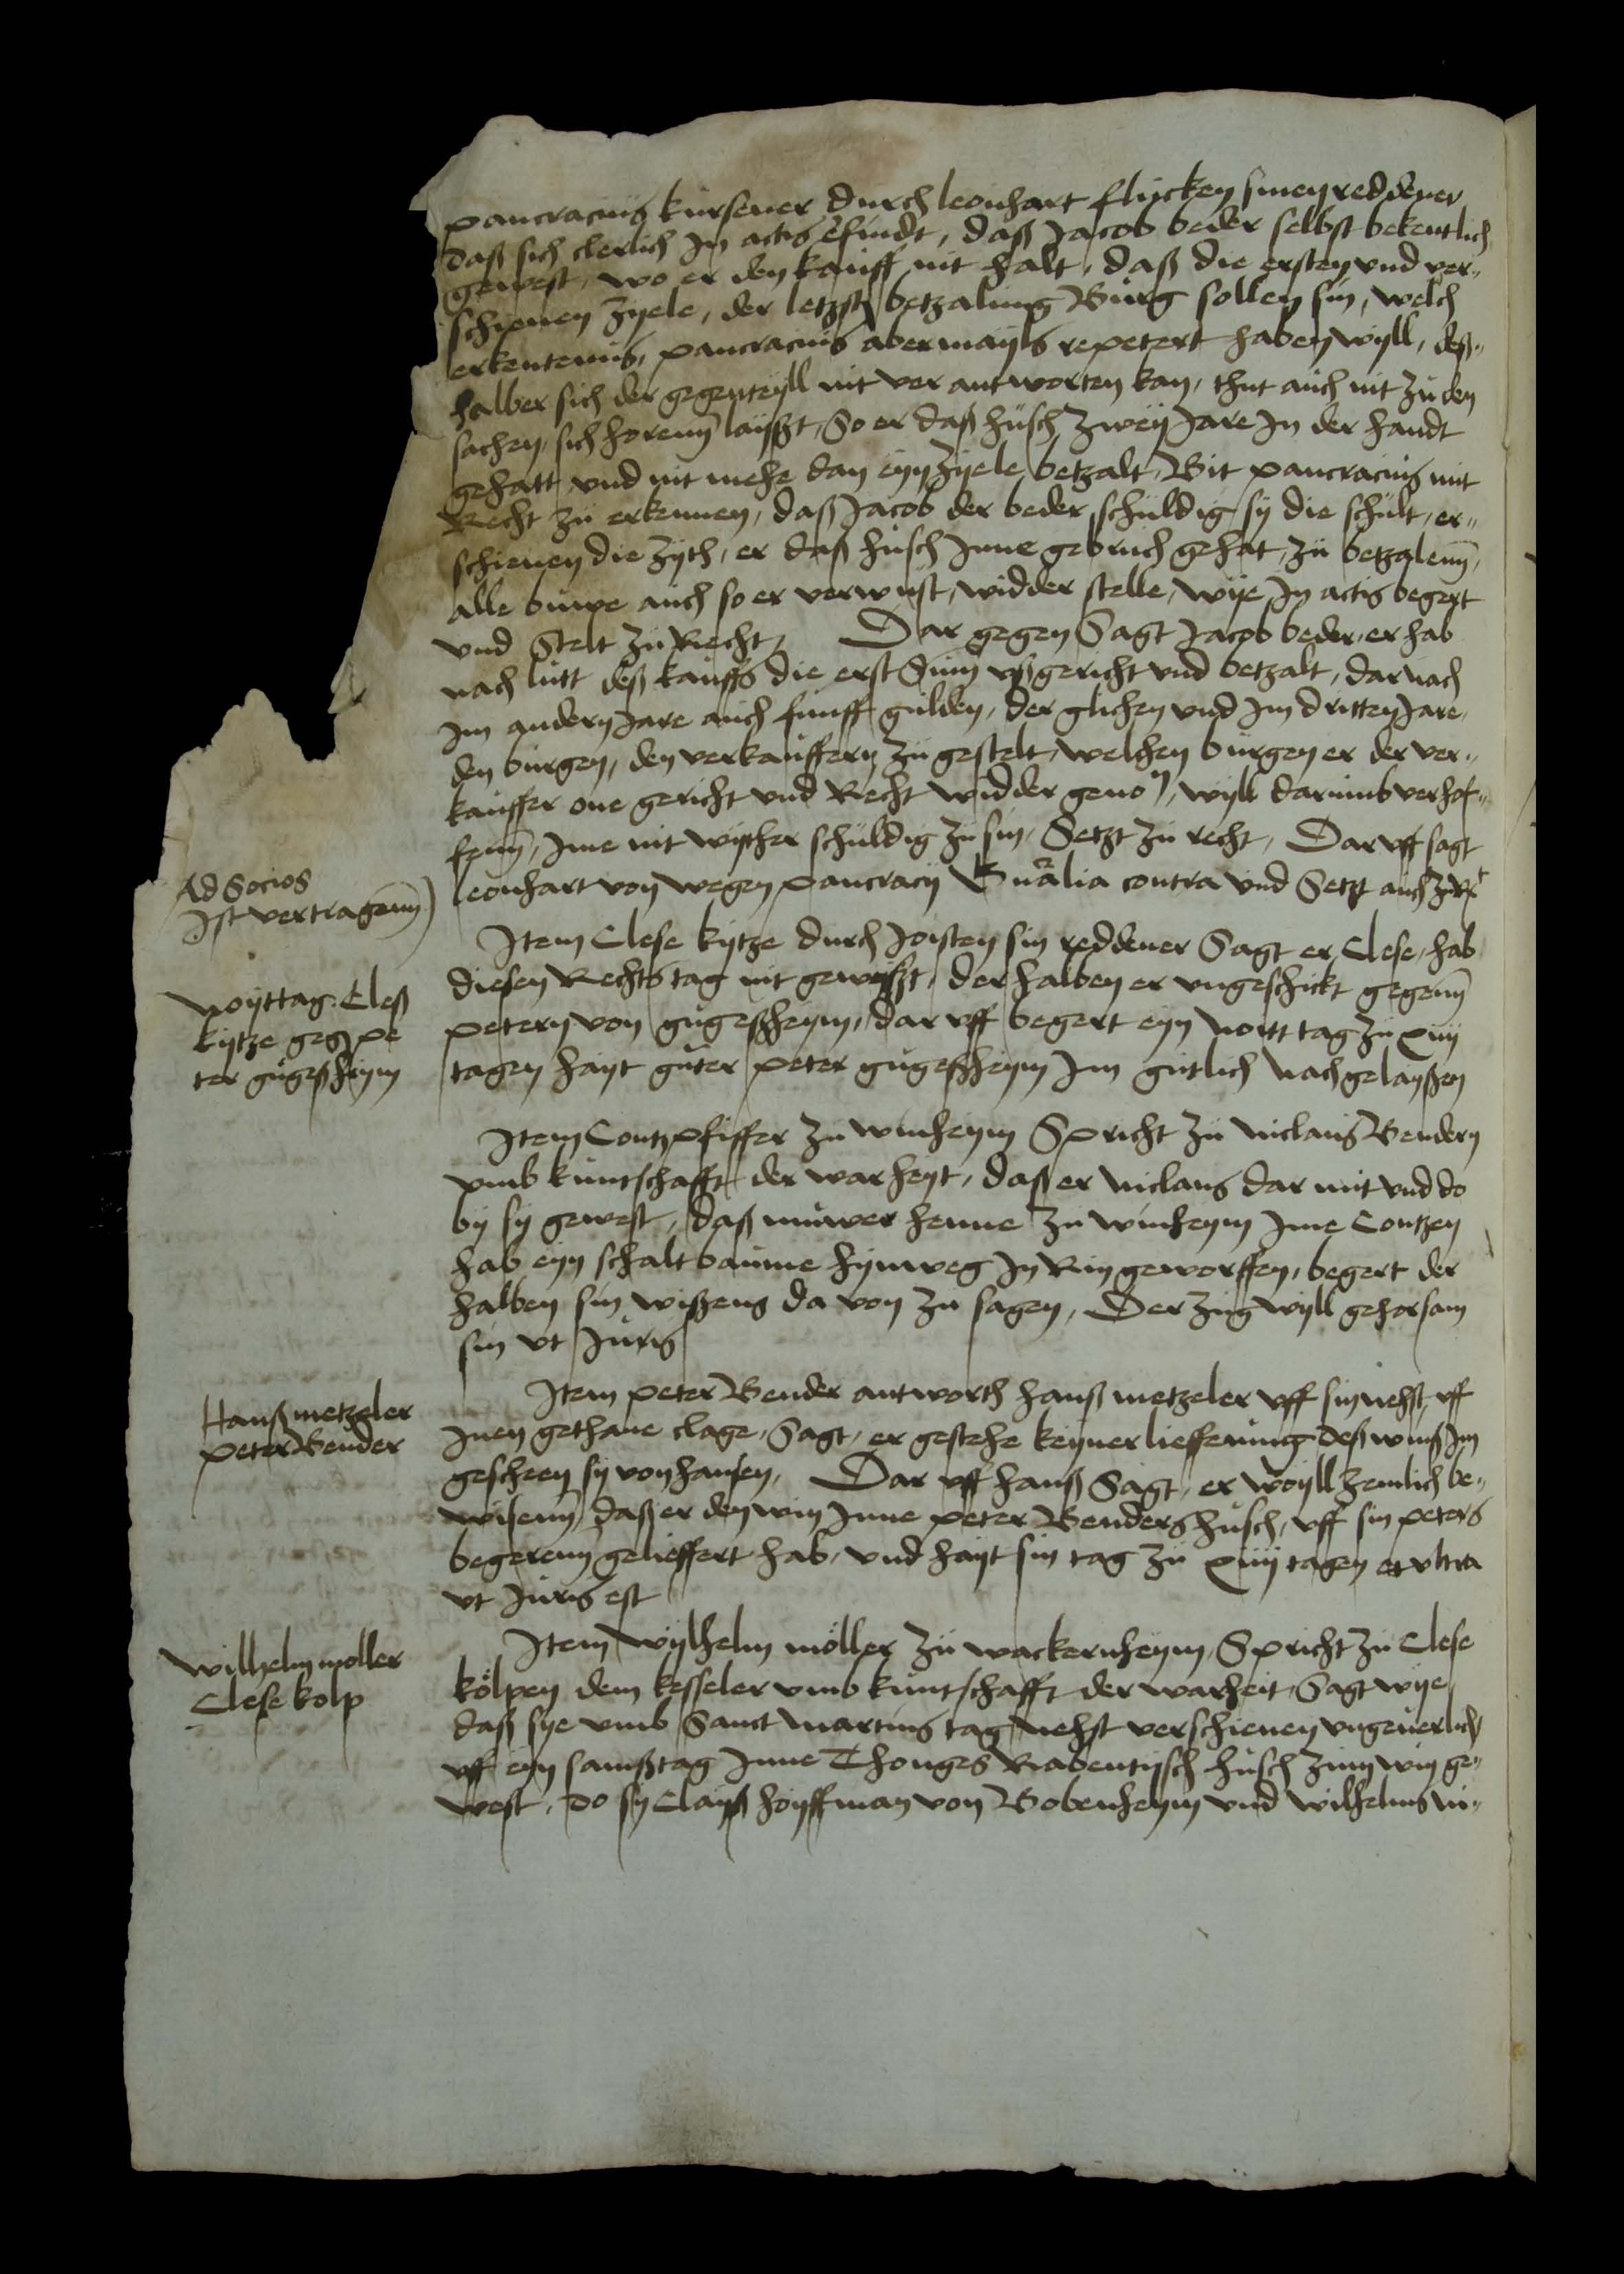 pancracius kursener durch leonhart flücken sinen reddener
daß sich clerlich In actis efindt, daß Jacob beder selbst bekentlich
gewest, wo er den kauff nit halt, daß die ersten vnd ver„
schienen zyele, der letzst betzalung Burg sollen sin, welch
erkentenus, pancracius abermayls repetert haben wyll, deß„
halber sich der gegenteyll nit ver antworten kan, thut auch nit zu den
sachen, sich horenn laysßt, So er daß husch zweÿ Jare In der handt
gehatt vnd nit mehe dan eyn zyele betzalt, Bit pancracius mit
Recht zu erkennen, daß Jacob der beder schuldig sÿ die schült, er„
schienen die zyth, er daß husch Inne gebruch gehat, zu betzalenn,
alle buwe auch so er verwust, widder stelle, wÿe In actis begert
vnd Stelt zu Recht, Dar gegen Sagt Jacob beder, er hab
nach lutt deß kauffs die erst Sum vßgericht vnd betzalt, dar nach
Im andern Jare auch funff gulden, der glichen vnd Im dritten Jare,
den burgen, den verkauffern zu gestelt, welchen burgen er der ver„
kauffer one gericht vnd Recht widder geno), wyll darumb verhof„
fenn, Ime nit wyther schuldig zu sin, Setzt zu recht, Dar vff sagt
leonhart von wegen pancracÿ Gnalia contra vnd Setzt auch zu Rt
Ad Socios
Ist vertragenn)
Item Clese kytze durch Joisten sin reddener Sagt er Clese, hab
diesen Rechts tag nit gewysßt, der halben er vngeschickt gegenn
petern von gugeßheym, dar vff begert eyn noitt tag zu xiiij
tagen hayt guter peter gugeßheym Im gutlich nach gelayßen
Noyttag: Cleß
kytze gegen pe
ter gugeßheym
Item Contz pfiffer zu winheym Spricht zu niclaus Bendern
vmb kuntschafft der warheyt, daß er niclaus dar mit vnd do
bÿ sÿ gewest, daß muwer henne zu winheym Ime Contzen
hab eyn schaltbaume hynweg In Rin geworffen, begert der
halben sin wißens da von zu sagen, Der zug wyll gehorsam
sin vt Juris
Item peter Bender antworth hanß metzeler vff sin nehst, vff
Inen gethane clage, Sagt, er gestehe keyner liefferung deß winß Im
gescheen sÿ von hansen, Dar vff hanß Sagt, er woyll zemlich be„
wisenn, daß er den win Inne peter Benders husch, vff sin peters
begerenn gelieffert hab, vnd hayt sin tag zu xiiij tagen et vltra
vt Juris est
Hanß metzeler
peter Bender
Item wylhelm möller zu wackernheym, Spricht zu Clese
kölpen dem kesseler vmb kuntschafft der warheit, Sagt wÿe
daß sye vmb Sanct martins tag nehst verschienen vngeuerlich
vff eyn samßtag Inne Thonges Rabentisch husch zum win ge„
west, do sÿ Clayß hoyffman von Bobenheym vnd wilhelms ni„
Wilhelm moller
Clese kolp